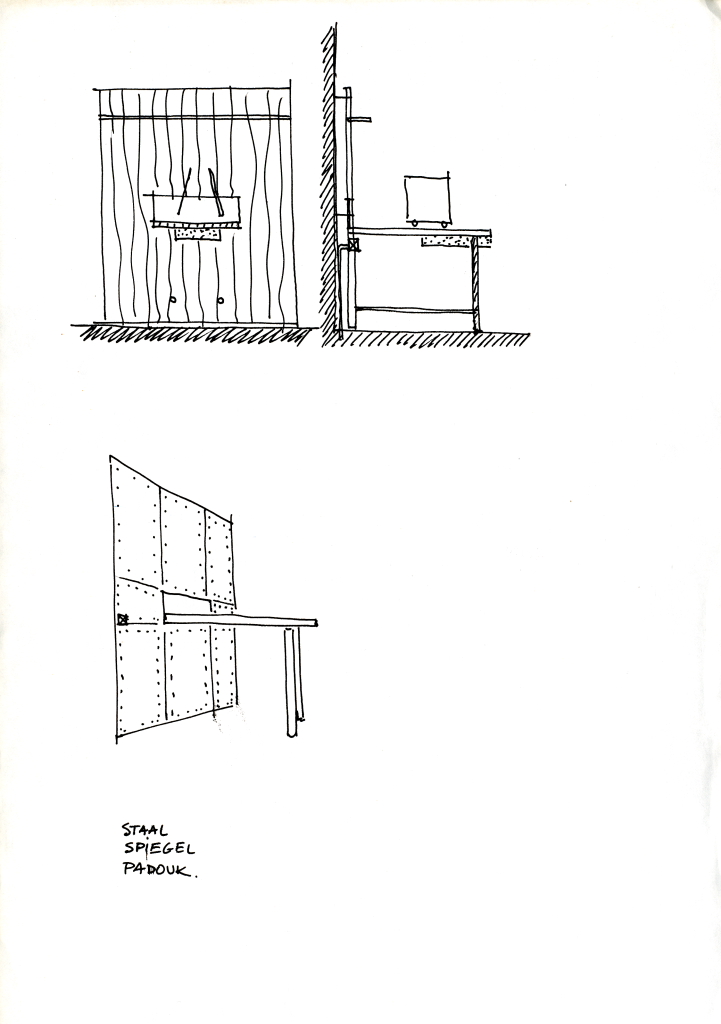 STAAL
SPIEGEL
PADOUK.